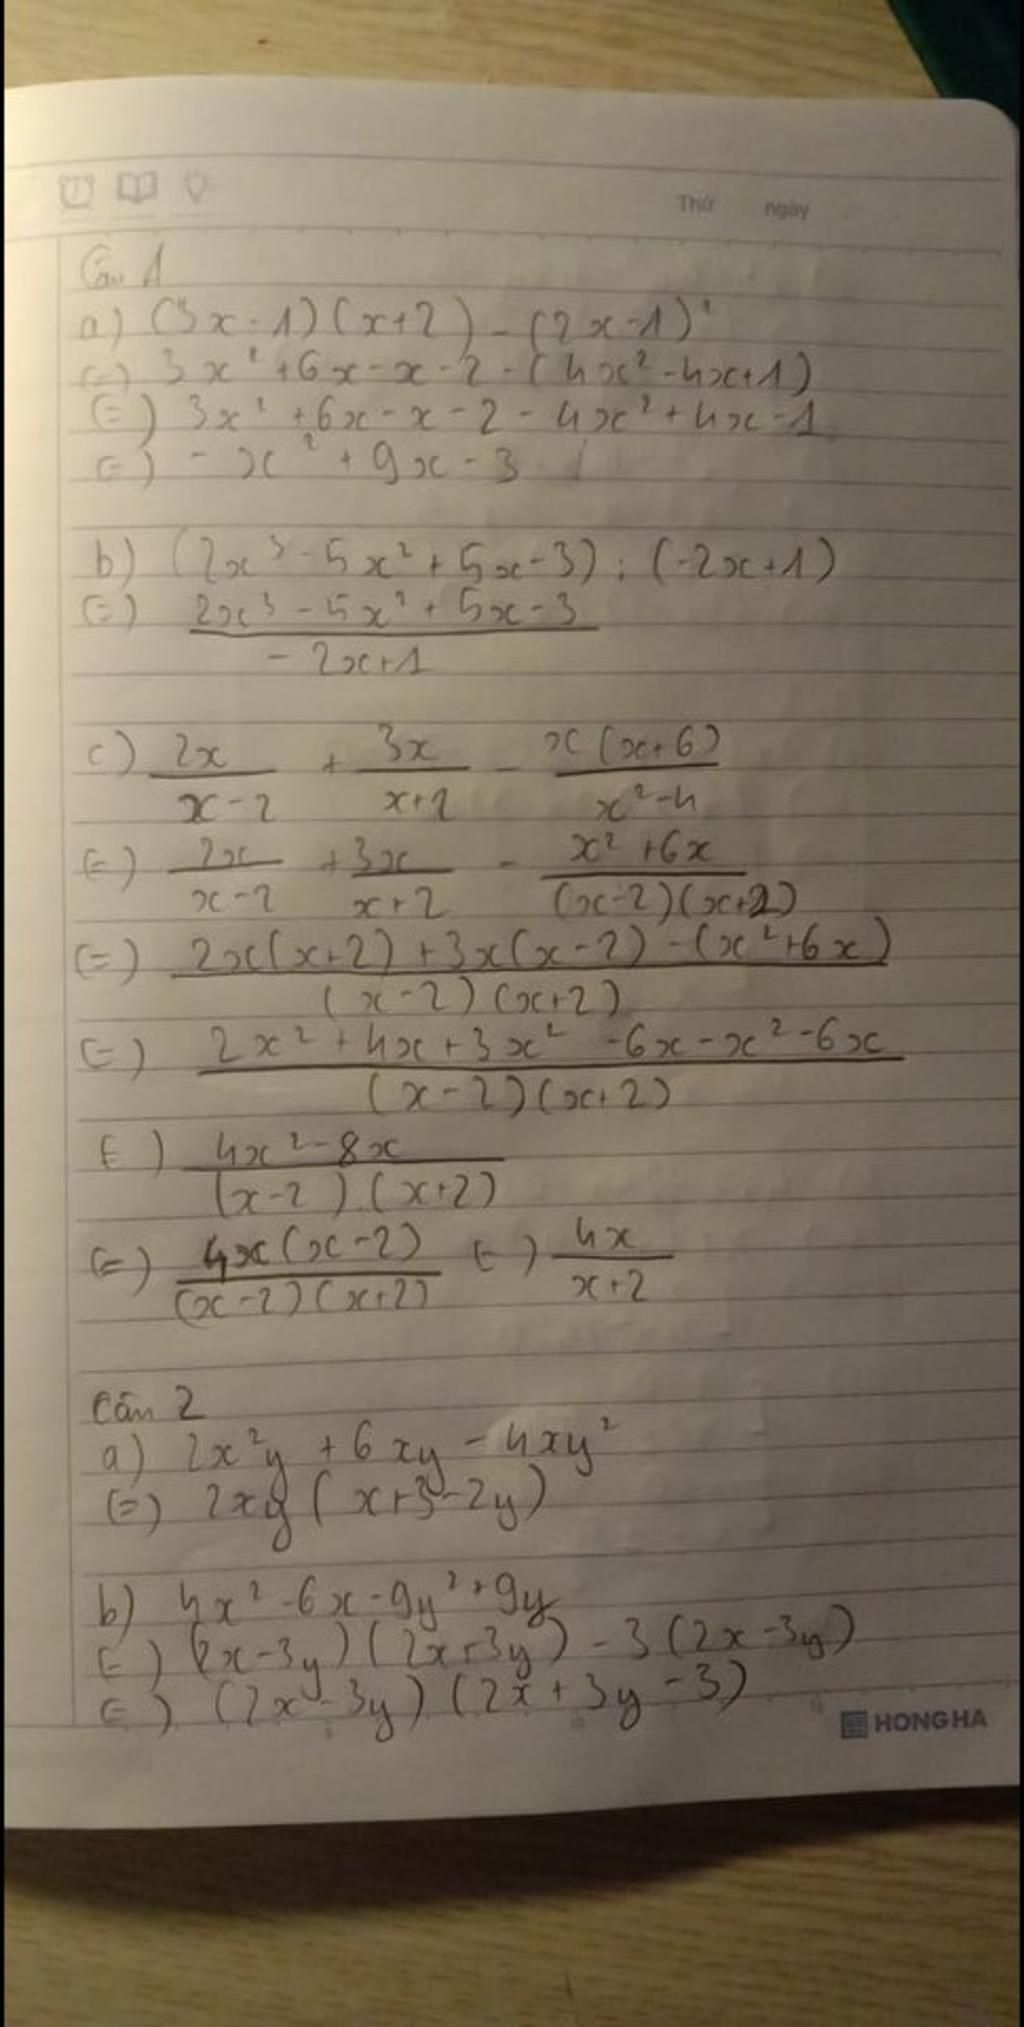 Thứ ngày
Câu 1
a) (3x-1)(x+2) - (2x-1)²
(=) 3x² + 6x - x - 2 - (4x² - 4x + 1)
(=) 3x² + 6x - x - 2 - 4x² + 4x - 1
(=) - x² + 9x - 3
b) (2x³ - 5x² + 5x - 3) : (-2x+1)
(=) \frac{2x³ - 5x² + 5x - 3}{-2x+1}
c) \frac{2x}{x-2} + \frac{3x}{x+2} - \frac{x(x+6)}{x²-4}
(=) \frac{2x}{x-2} + \frac{3x}{x+2} - \frac{x²+6x}{(x-2)(x+2)}
(=) \frac{2x(x+2) + 3x(x-2) - (x²+6x)}{(x-2)(x+2)}
(=) \frac{2x² + 4x + 3x² - 6x - x² - 6x}{(x-2)(x+2)}
(=) \frac{4x² - 8x}{(x-2).(x+2)}
(=) \frac{4x(x-2)}{(x-2)(x+2)} (=) \frac{4x}{x+2}
Câu 2
a) 2x²y + 6xy - 4xy²
(=) 2xy (x+3-2y)
b) 4x² - 6x - 9y² + 9y
(=) (2x-3y)(2x+3y) - 3(2x-3y)
(=) (2x-3y)(2x+3y-3)
HONG HA